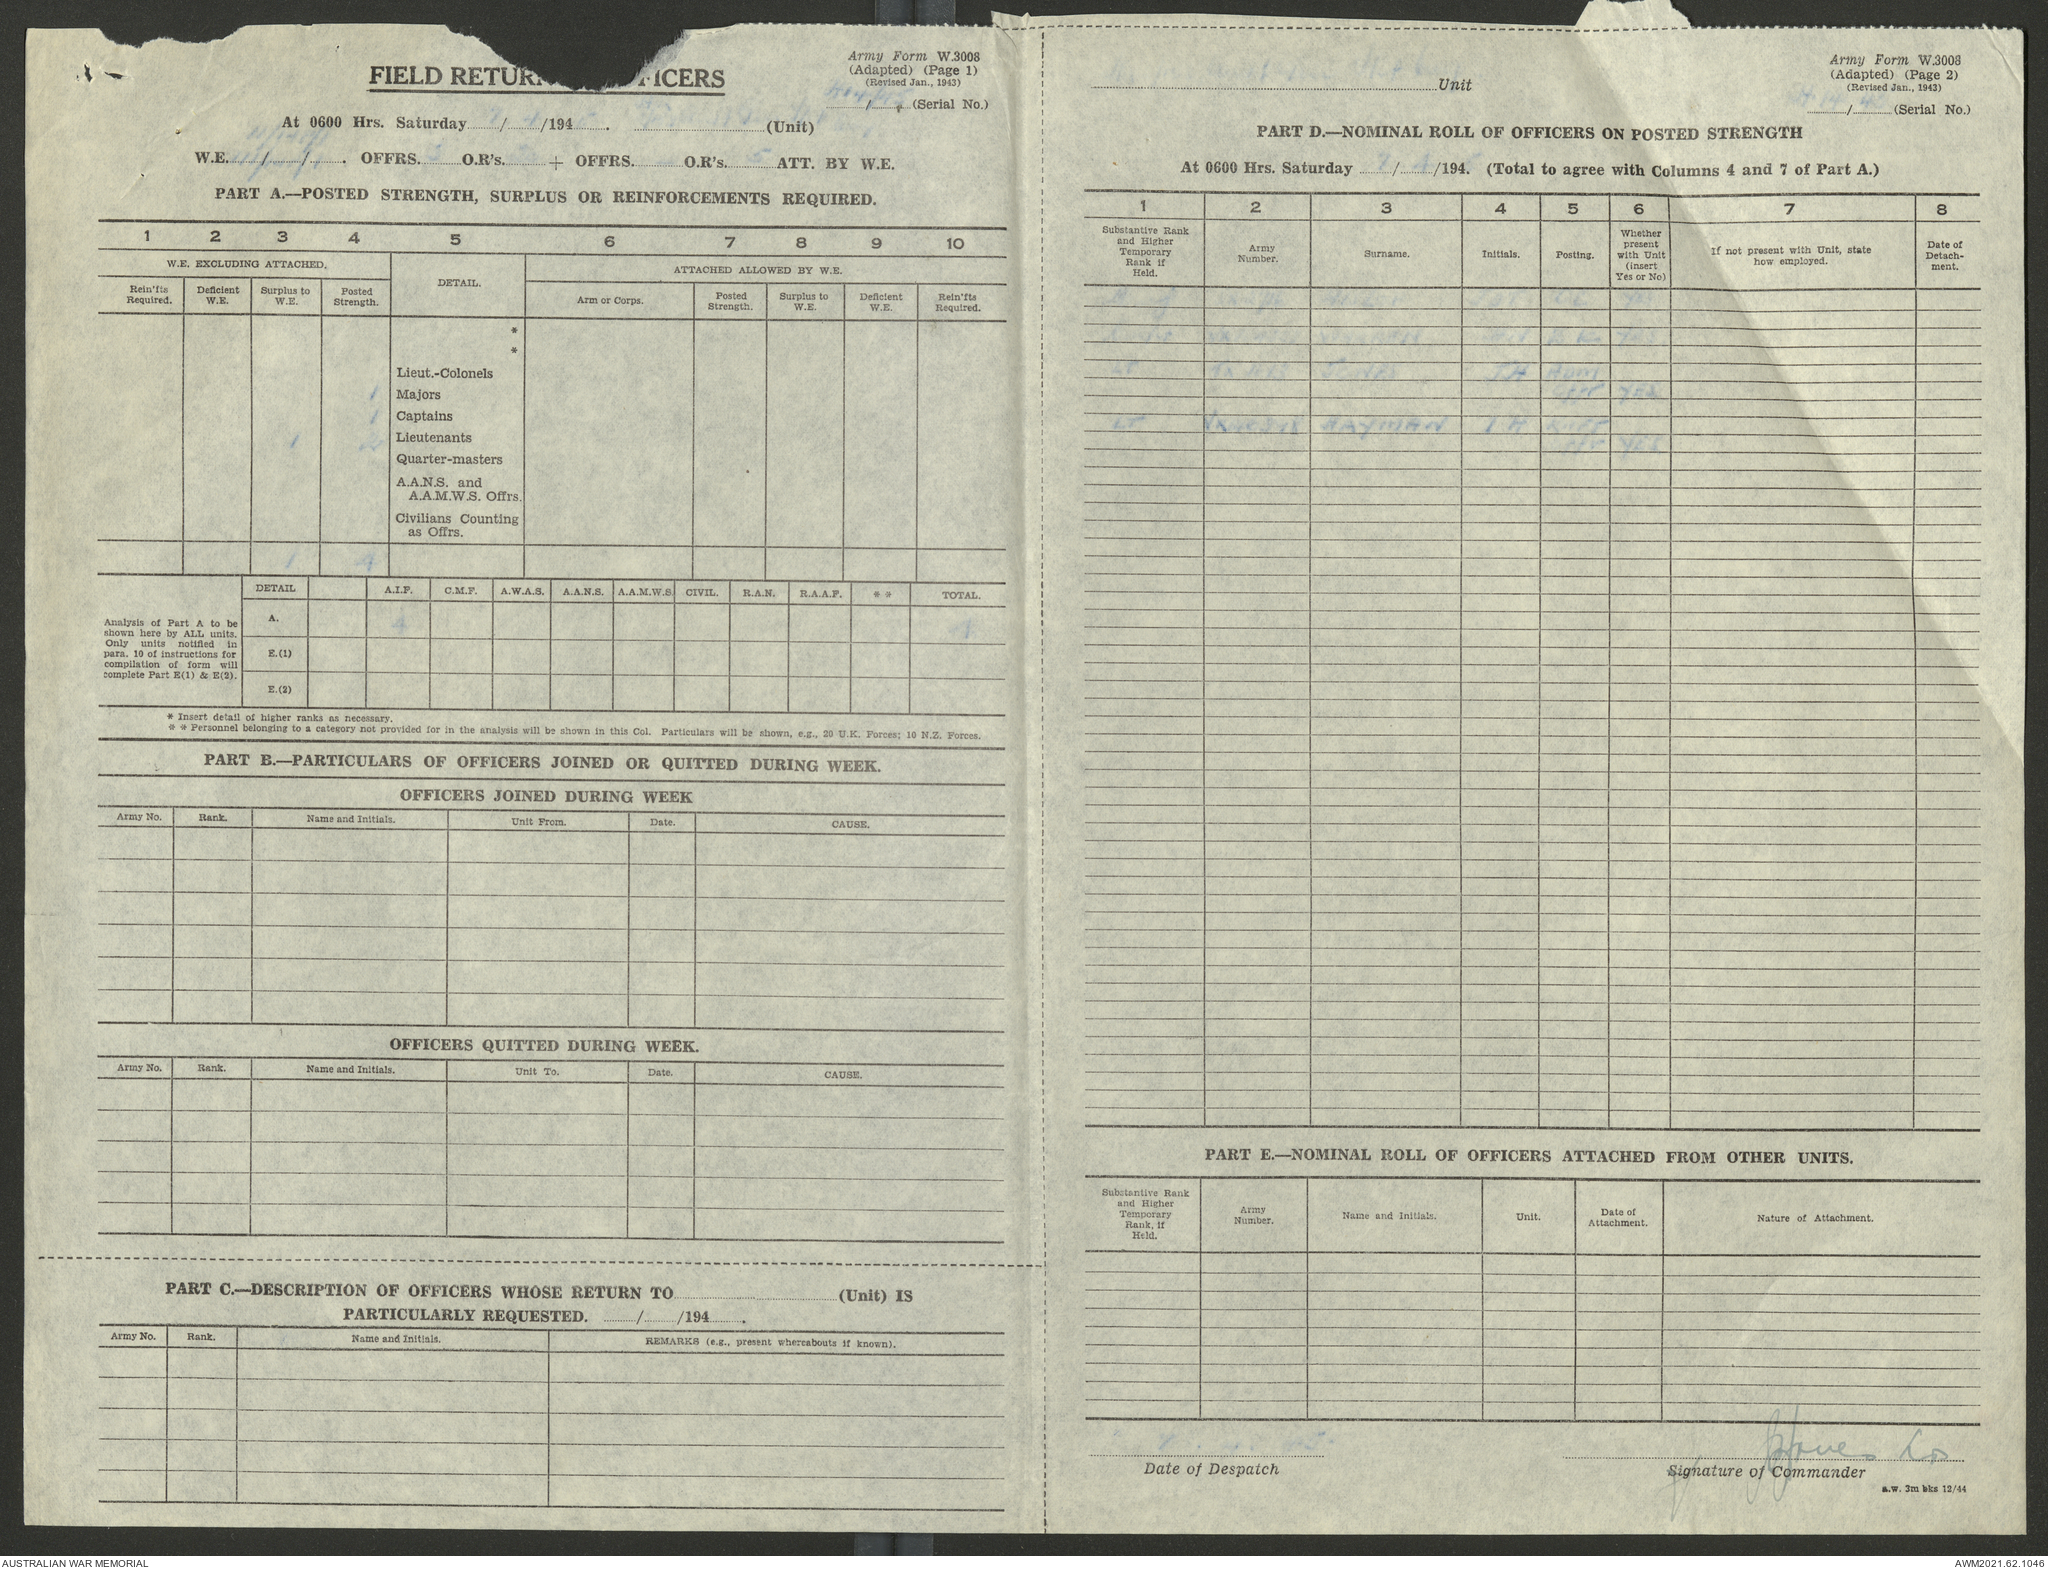 FIELD RETURN FICERS
Army Form W.3008
(Adapted) (Page 1)
(Revised Jan., 1943)
/ (Serial No.)
At 0600 Hrs. Saturday / /194 . (Unit)
W.E. / / . OFFRS. 3 O.R's. + OFFRS. O.R's. 5 ATT. BY W.E.
PART A.—POSTED STRENGTH, SURPLUS OR REINFORCEMENTS REQUIRED.
1 2 3 4 5 6 7 8 9 10
W.E. EXCLUDING ATTACHED. DETAIL. ATTACHED ALLOWED BY W.E.
Rein'fts Required. Deficient W.E. Surplus to W.E. Posted Strength. Arm or Corps. Posted Strength. Surplus to W.E. Deficient W.E. Rein'fts Required.
*
*
Lieut.-Colonels
1 Majors
1 Captains
1 2 Lieutenants
Quarter-masters
A.A.N.S. and
A.A.M.W.S. Offrs.
Civilians Counting
as Offrs.
1 4
DETAIL A.I.F. C.M.F. A.W.A.S. A.A.N.S. A.A.M.W.S. CIVIL. R.A.N. R.A.A.F. * * TOTAL.
Analysis of Part A to be
shown here by ALL units.
Only units notified in
para. 10 of instructions for
compilation of form will
complete Part E(1) & E(2).
A. 4 4
E.(1)
E.(2)
* Insert detail of higher ranks as necessary.
* * Personnel belonging to a category not provided for in the analysis will be shown in this Col. Particulars will be shown, e.g., 20 U.K. Forces; 10 N.Z. Forces.
PART B.—PARTICULARS OF OFFICERS JOINED OR QUITTED DURING WEEK.
OFFICERS JOINED DURING WEEK
Army No. Rank. Name and Initials. Unit From. Date. CAUSE.
OFFICERS QUITTED DURING WEEK.
Army No. Rank. Name and Initials. Unit To. Date. CAUSE.
PART C.—DESCRIPTION OF OFFICERS WHOSE RETURN TO (Unit) IS
PARTICULARLY REQUESTED. / /194 .
Army No. Rank. Name and Initials. REMARKS (e.g., present whereabouts if known).
Army Form W.3008
(Adapted) (Page 2)
(Revised Jan., 1943)
Unit
/ (Serial No.)
PART D.—NOMINAL ROLL OF OFFICERS ON POSTED STRENGTH
At 0600 Hrs. Saturday 7/4/194. (Total to agree with Columns 4 and 7 of Part A.)
1 2 3 4 5 6 7 8
Substantive Rank and Higher Temporary Rank if Held. Army Number. Surname. Initials. Posting. Whether present with Unit (insert Yes or No) If not present with Unit, state how employed. Date of Detach-ment.
YES
YES
LT JONES
YES
LT HAYMAN
YES
PART E.—NOMINAL ROLL OF OFFICERS ATTACHED FROM OTHER UNITS.
Substantive Rank and Higher Temporary Rank, if Held. Army Number. Name and Initials. Unit. Date of Attachment. Nature of Attachment.
Date of Despatch
Signature of Commander
a.w. 3m bks 12/44
AUSTRALIAN WAR MEMORIAL
AWM2021.62.1046